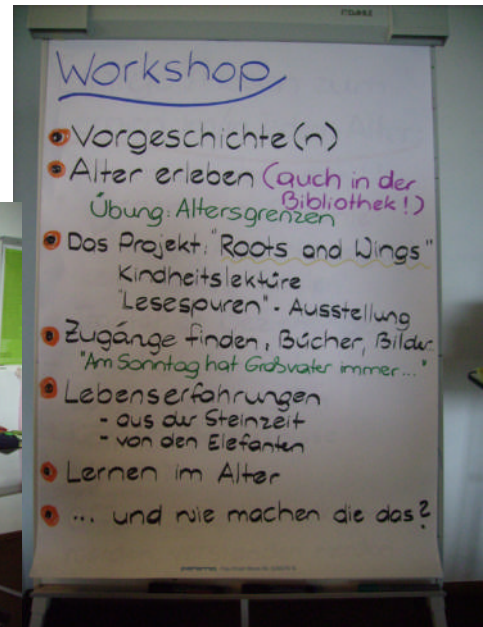 Workshop
Vorgeschichte(n)
Alter erleben (auch in der
Bibliothek!)
Übung: Altersgrenzen
Das Projekt: "Roots and Wings"
Kindheitslektüre
"Lesespuren" - Ausstellung
Zugänge finden, Bücher, Bilder
"Am Sonntag hat Großvater immer..."
Lebenserfahrungen
- aus der Steinzeit
- von den Elefanten
Lernen im Alter
... und wie machen die das?